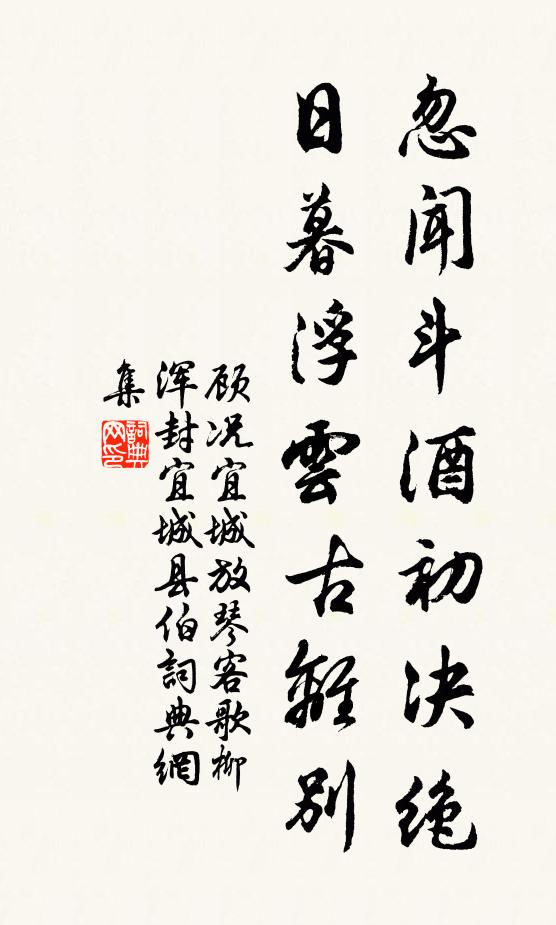 忽闻斗酒初决绝
日暮浮雲古離别
顾况宜城放琴客歌柳
浑封宜城县伯詞典網
集
詞典网印